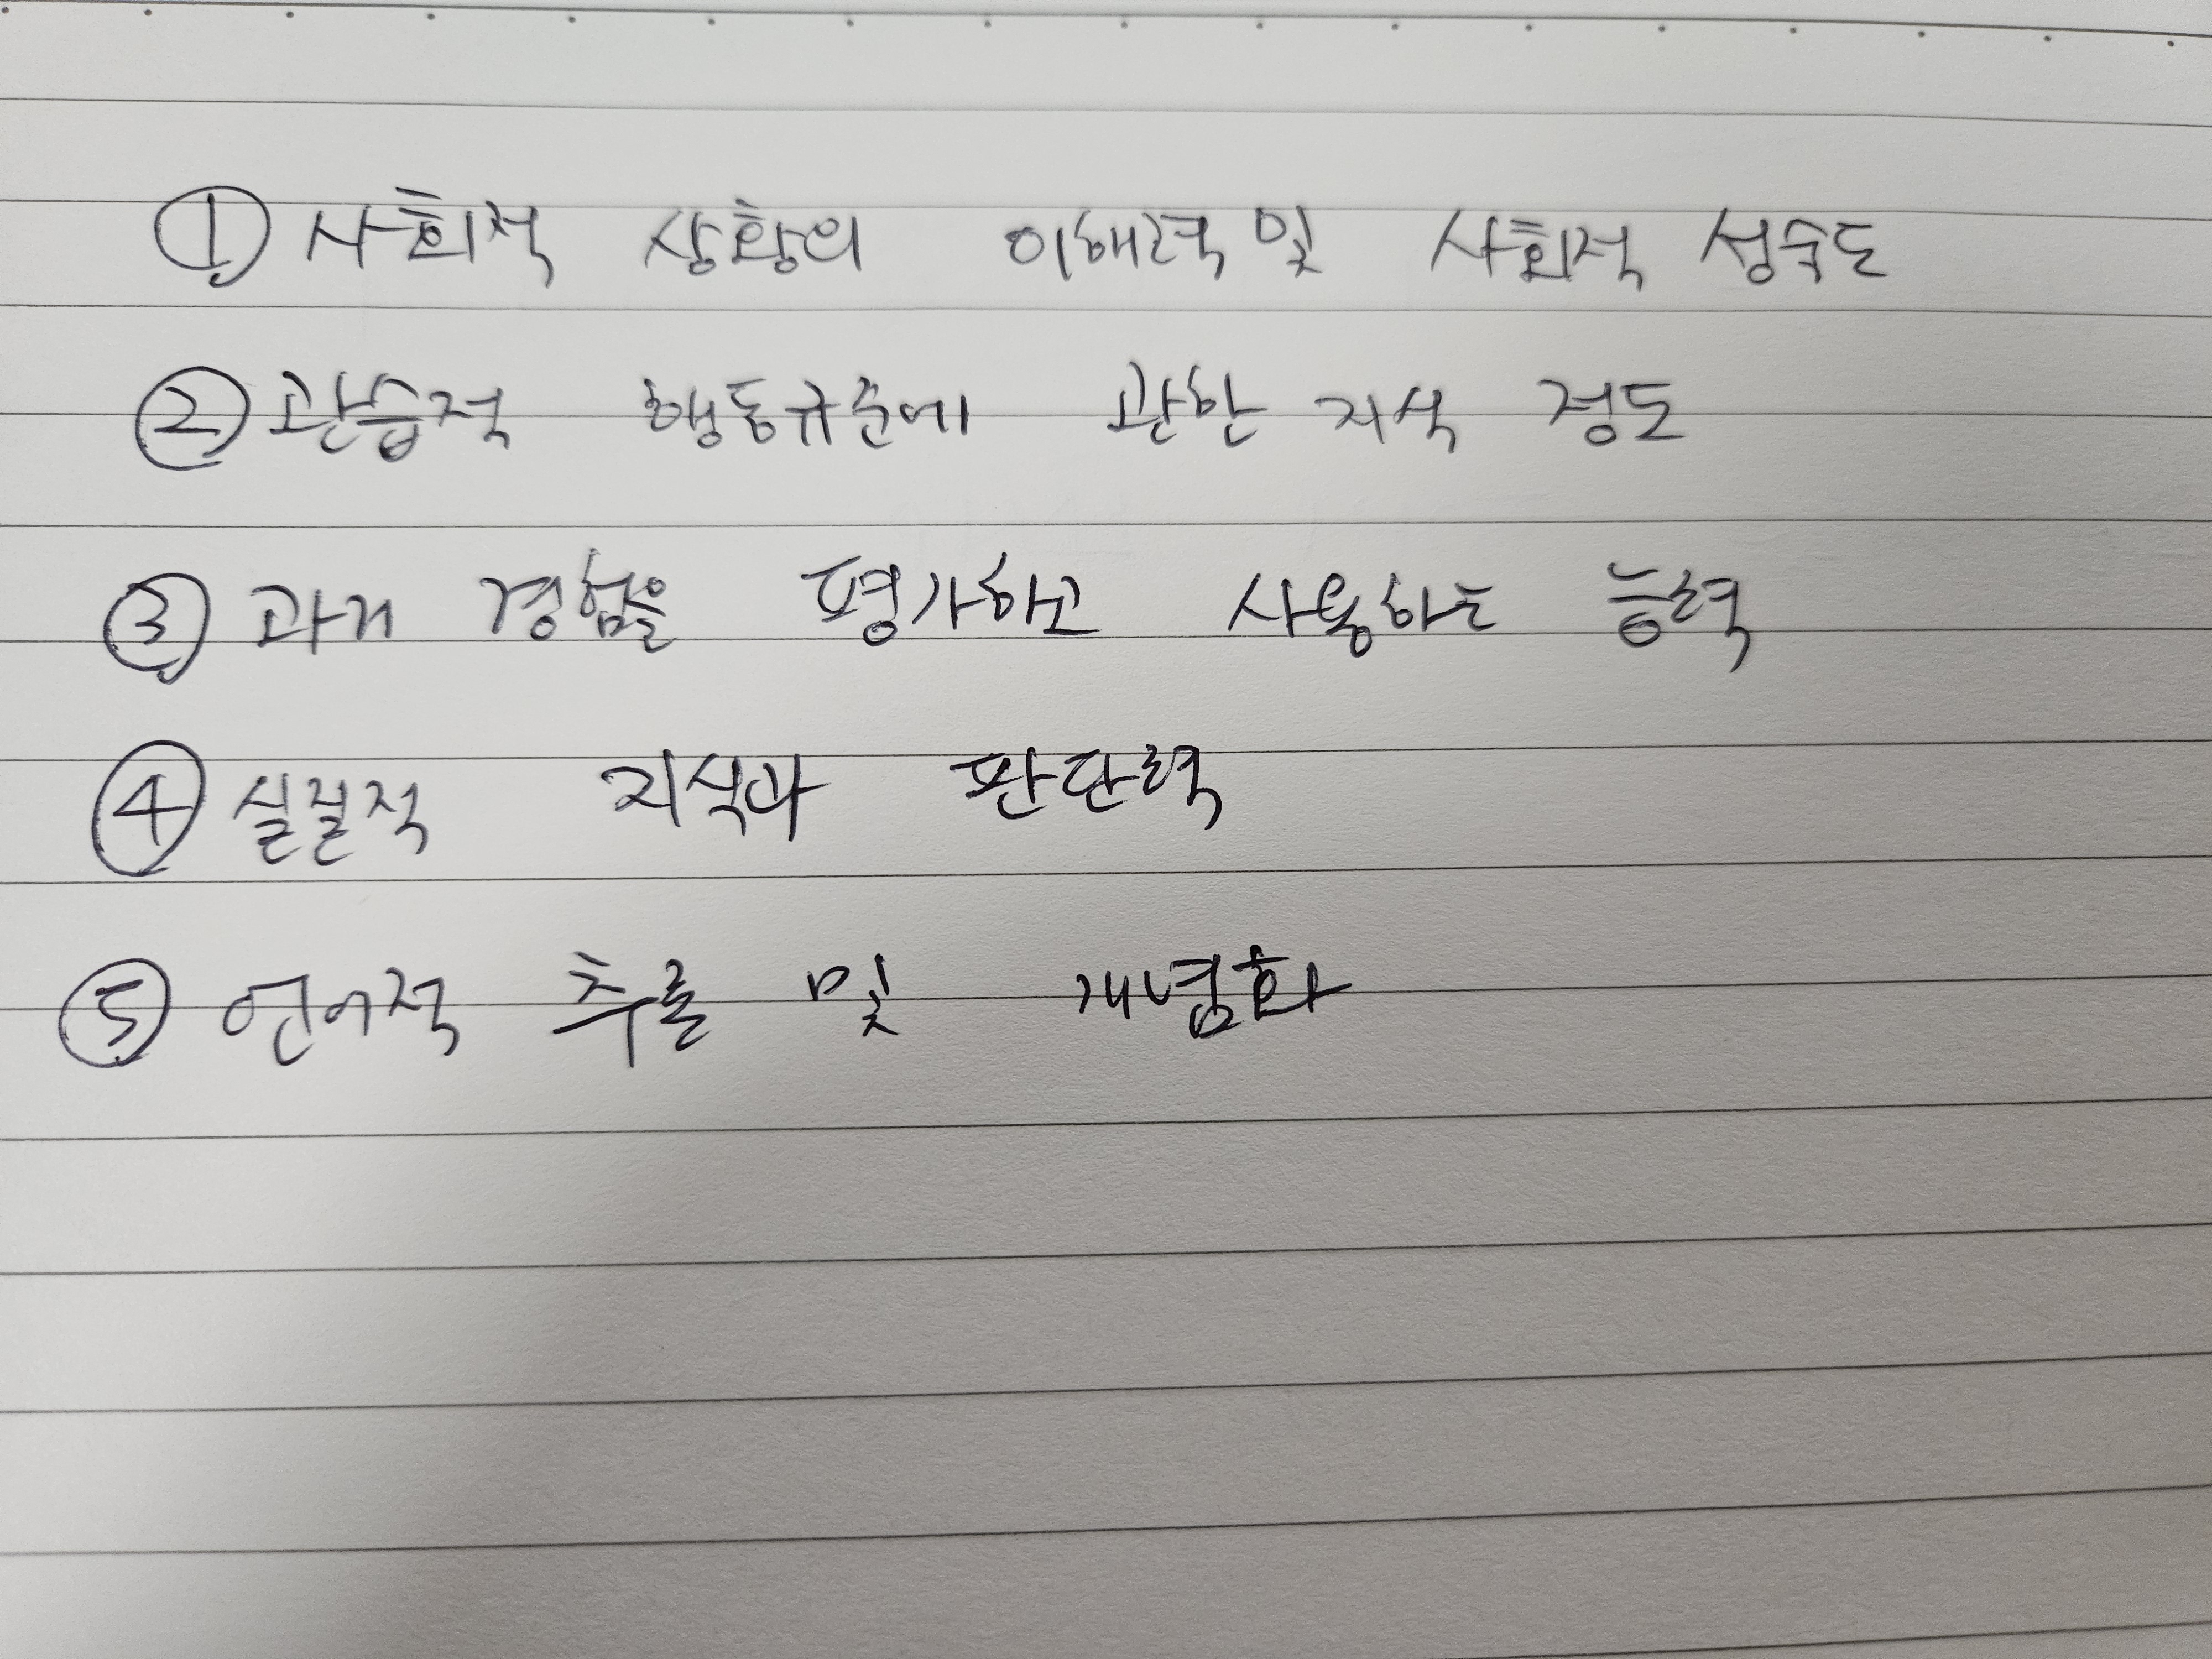 ① 사회적 상황의 이해력 및 사회적 성숙도
② 관습적 행동규준에 관한 지식 정도
③ 과거 경험을 평가하고 사용하는 능력
④ 실질적 지식과 판단력
⑤ 언어적 추론 및 개념화